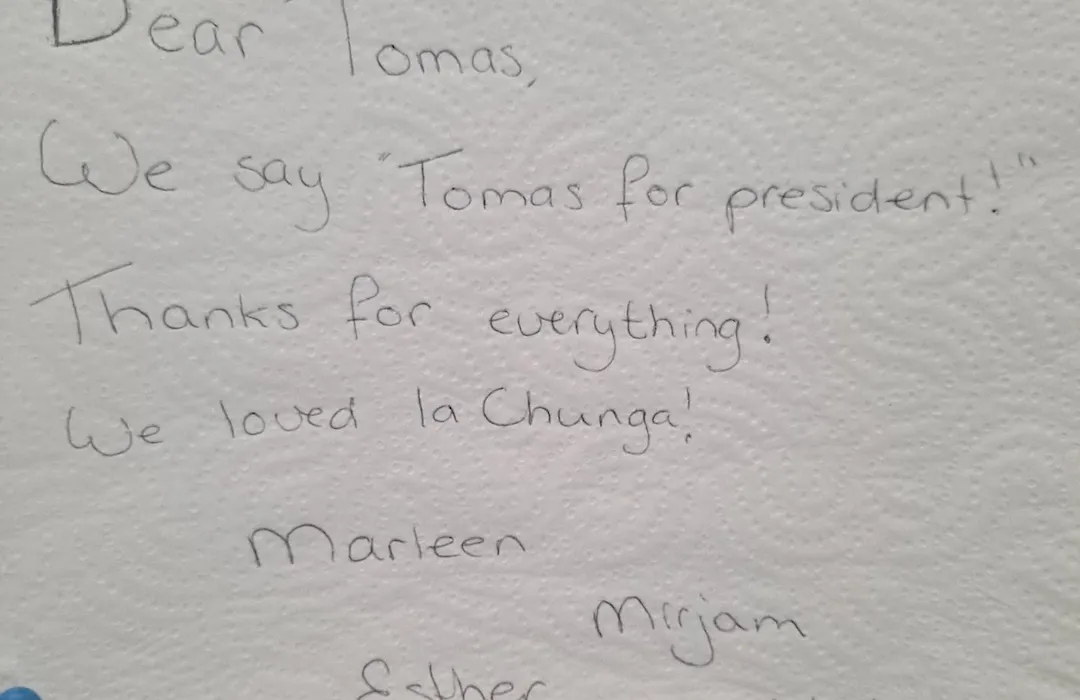 Dear Tomas,
We say "Tomas for president!"
Thanks for everything!
We loved la Chunga!
Marleen
Mirjam
Esther